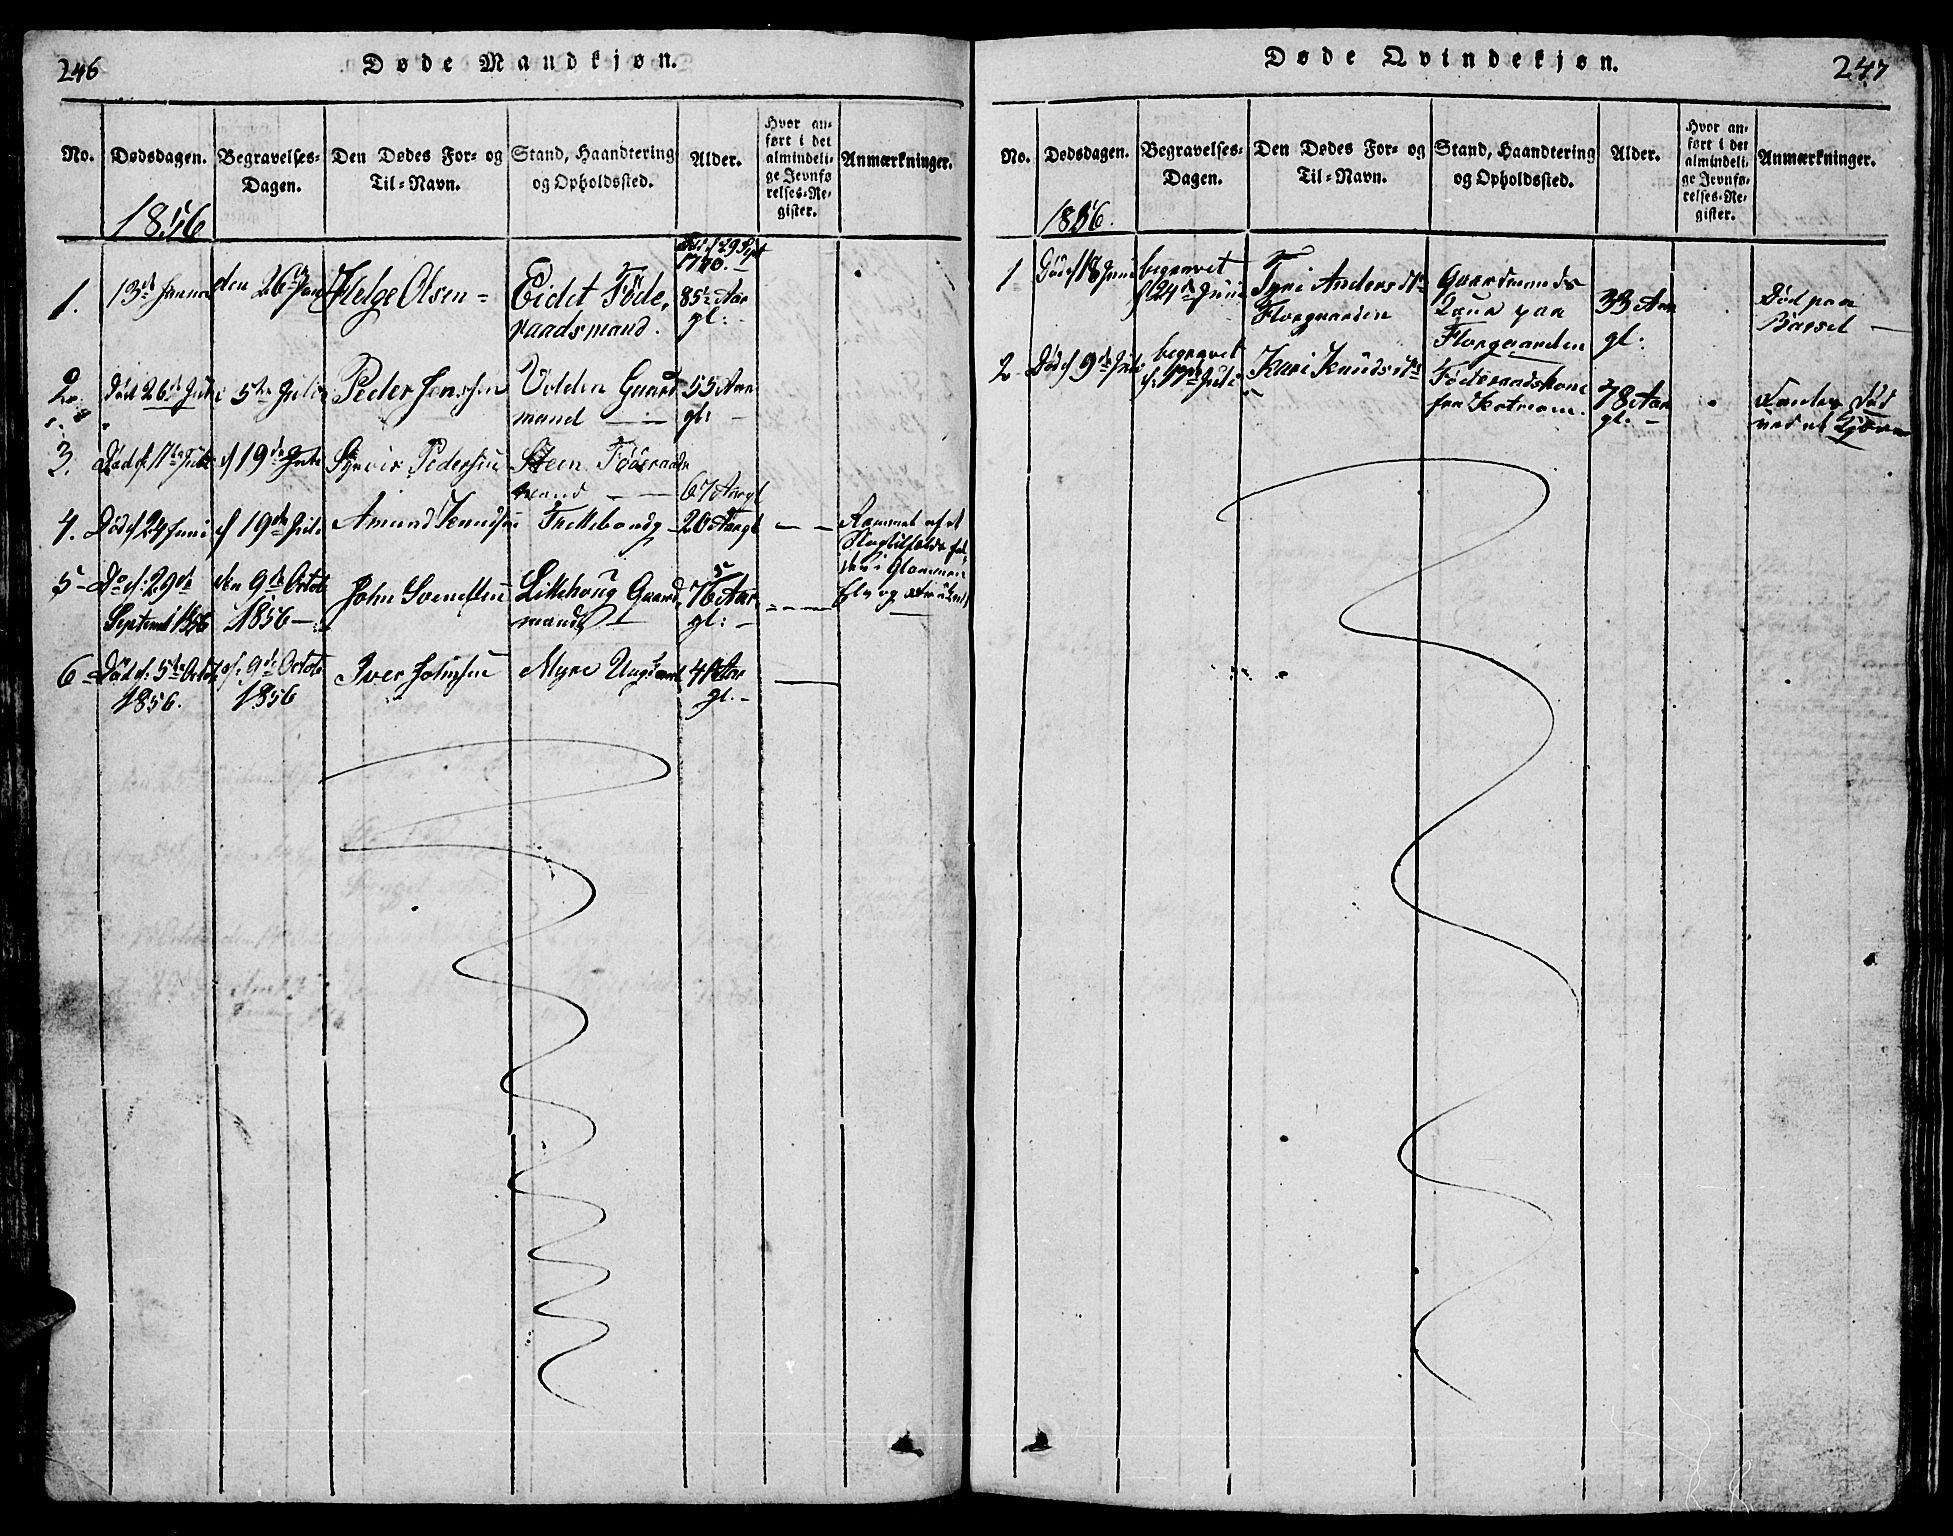 246
Døde Mandkjøn.
No. Dødsdagen. Begravelses-Dagen. Den Dødes For- og Til-Navn. Stand, Haandtering og Opholdssted. Alder. Hvor anført i det almindelige Jevnførelses-Register. Anmærkninger.
1856
1. 13de Januar den 26de Jan Helge Olsen Eidet Føde,
29 Sept 1770.
85 Aar
raadsmand. gl:
2. Død 26de 5te Julii Peder Jenssen Volden Gaard 55 Aar
mand gl:
3. Død d. 17de Juli d 19de Pedersen Steen Føderaads
mand 67 Aar gl
4. Død d 24 Juni d 19de Juli Amund 20 Aar gl Rammet af et
Slagtilfælde
i Glommen
5 Do d. 29de den 9de Octob John Svendsen Lillehoug Gaard 76 Aar
Elv og
Septemb 1856 1856 mand gl:
6 Død d. 5te Octob d. 9de Octob Iver Johnsen Myre Ungkarl Aar
1856. 1856 gl.
247
Døde Qvindekjøn.
No. Dødsdagen. Begravelses-Dagen. Den Dødes For- og Til-Navn. Stand, Haandtering og Opholdssted. Alder. Hvor anført i det almindelige Jevnførelses-Register. Anmærkninger.
1856.
1 Død d 18 Juni begravet Anders Dtr Gaardmands
d 24de Juni Florgaarden Kone paa 33 Aar Død paa
Florgaarden gl: Barsel
2 Død d 9de Juli begravet Kari Knuds Dtr Føderaadskone 78 Aar
d. 17de Juli fra gl.